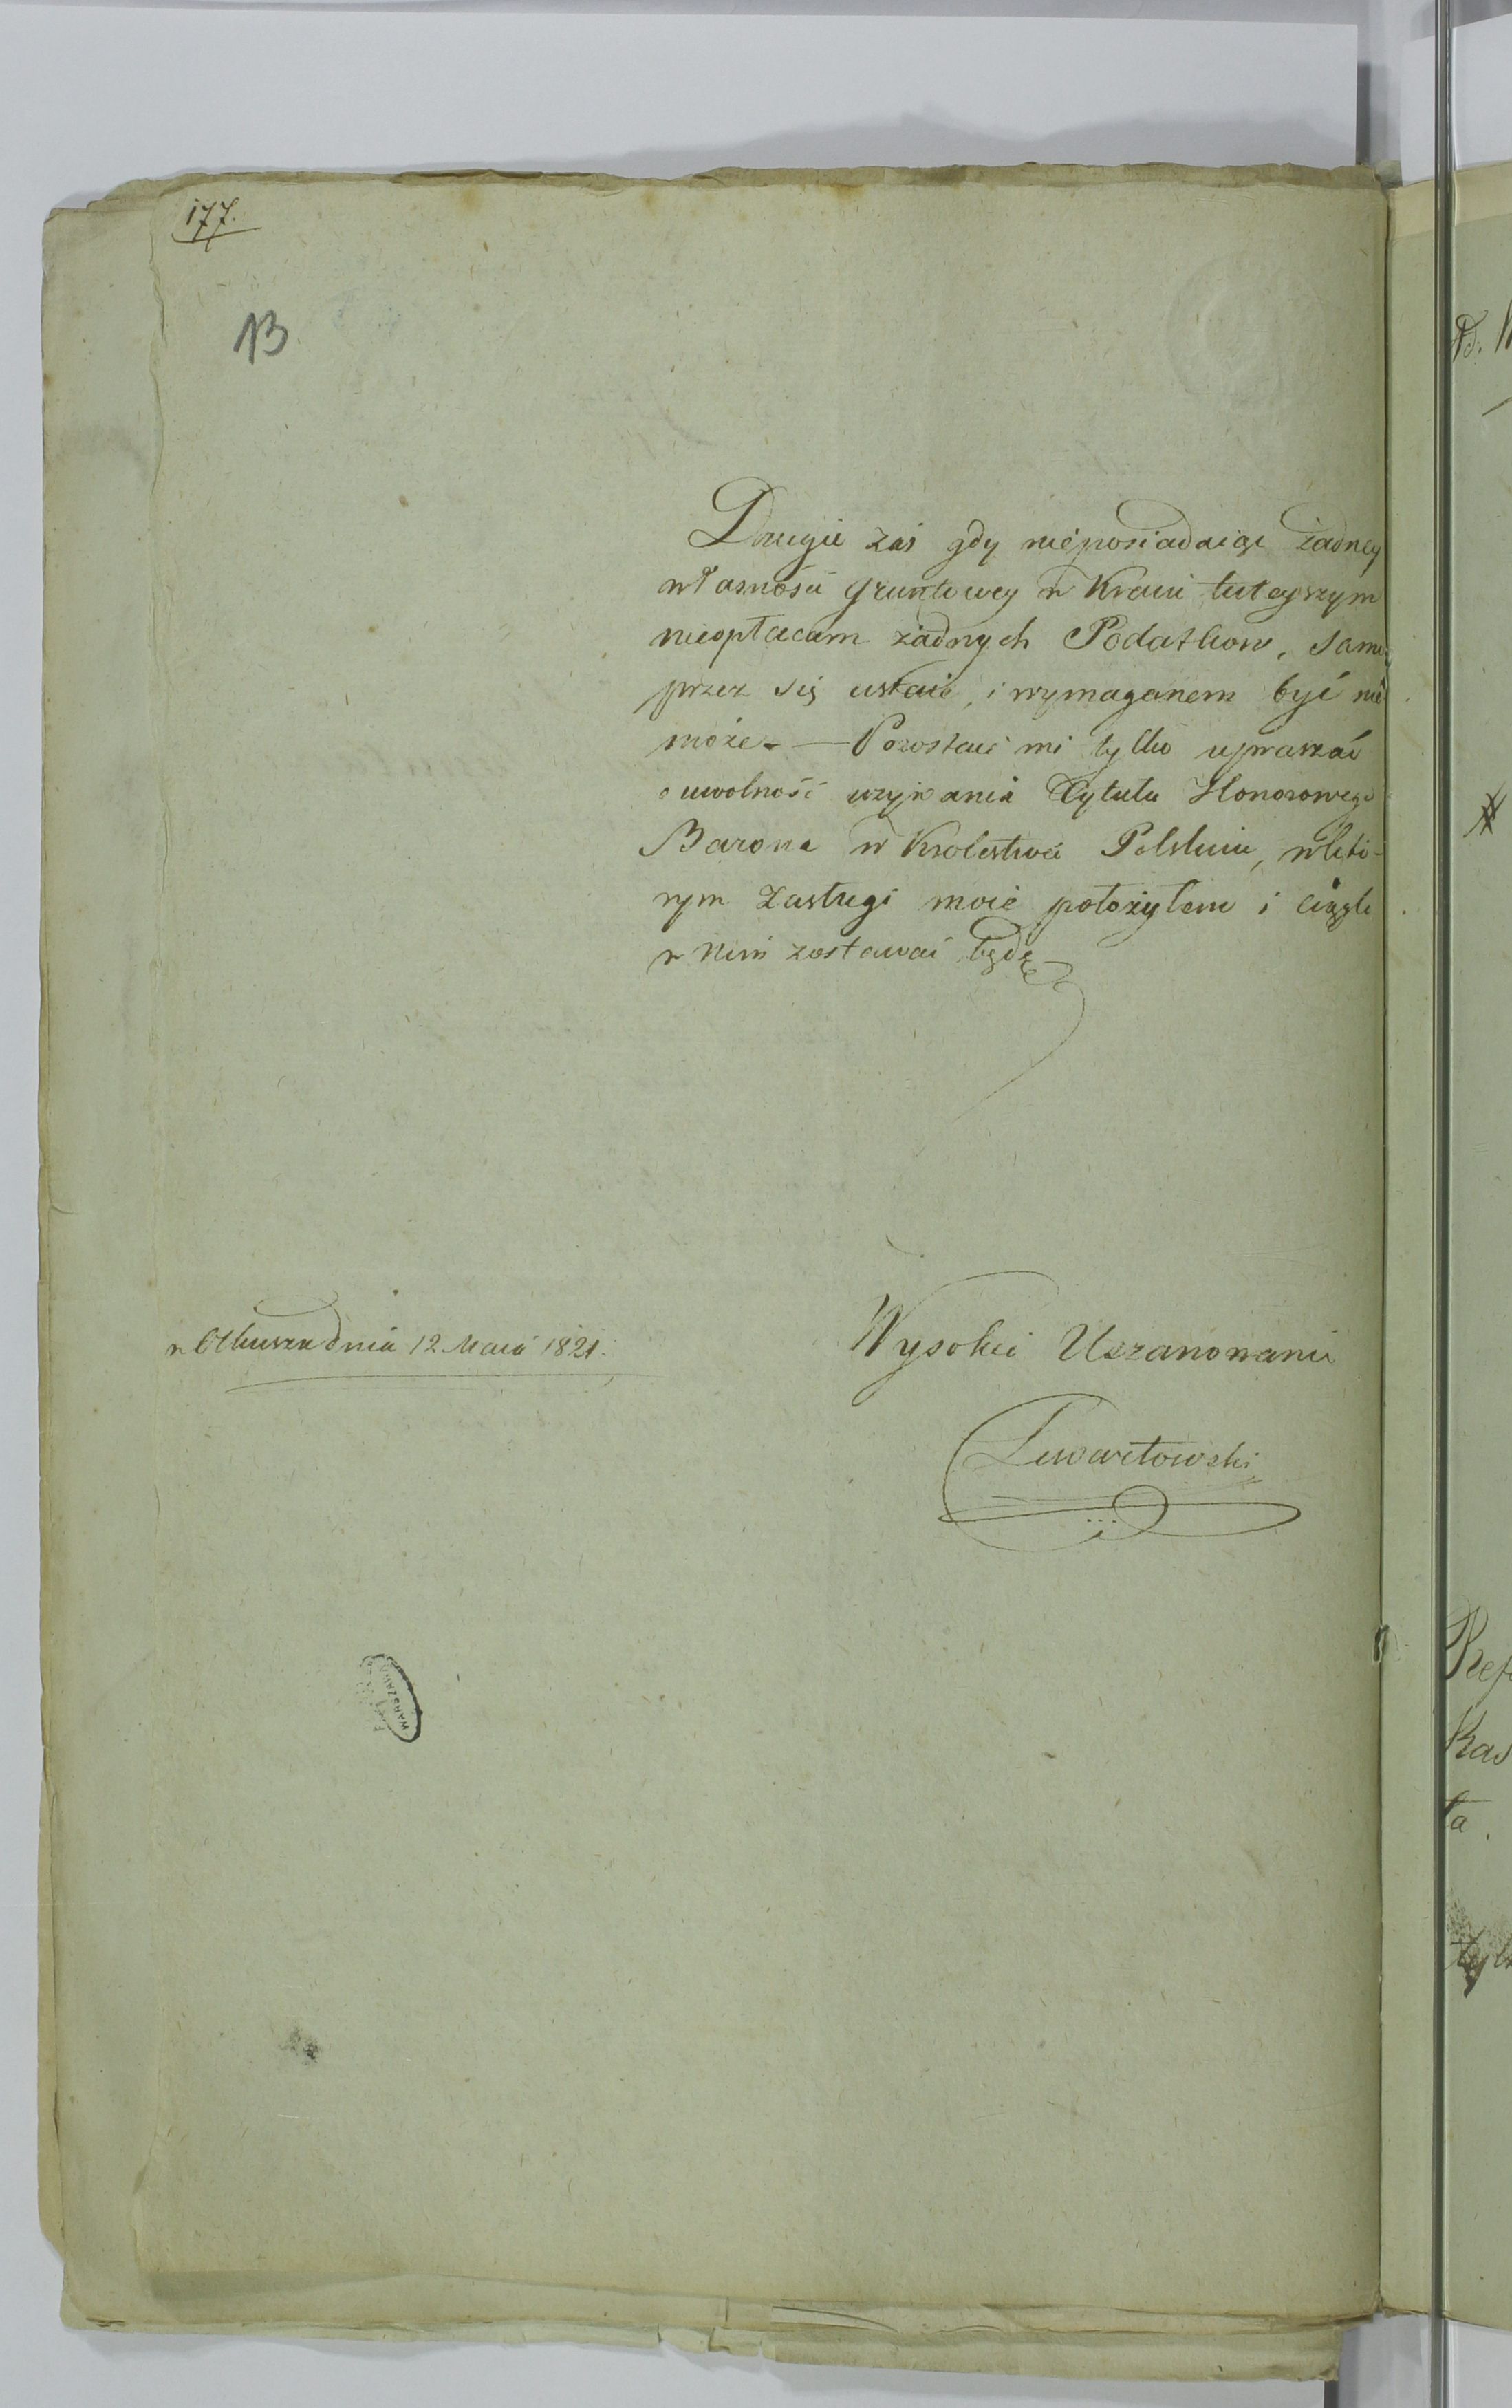 177.
13
Drugie zaś gdy nieposiadaiąc żadney
własności gruntowey w Kraiu tuteyszym
nieopłacam żadnych Podatkow, samo
przez się ustaie, i wymaganem być nie
może. — Pozostaie mi tylko upraszać
o uwolność używania Tytułu Honorowego
Barona w Krolestwie Polskim, w kto-
rym Zasługi moie położyłem i ciągle
w nim zostawać będę
w Olkuszu dnia 12 Maia 1821.
Wysokie Uszanowanie
Lewartowski
WARSZAW